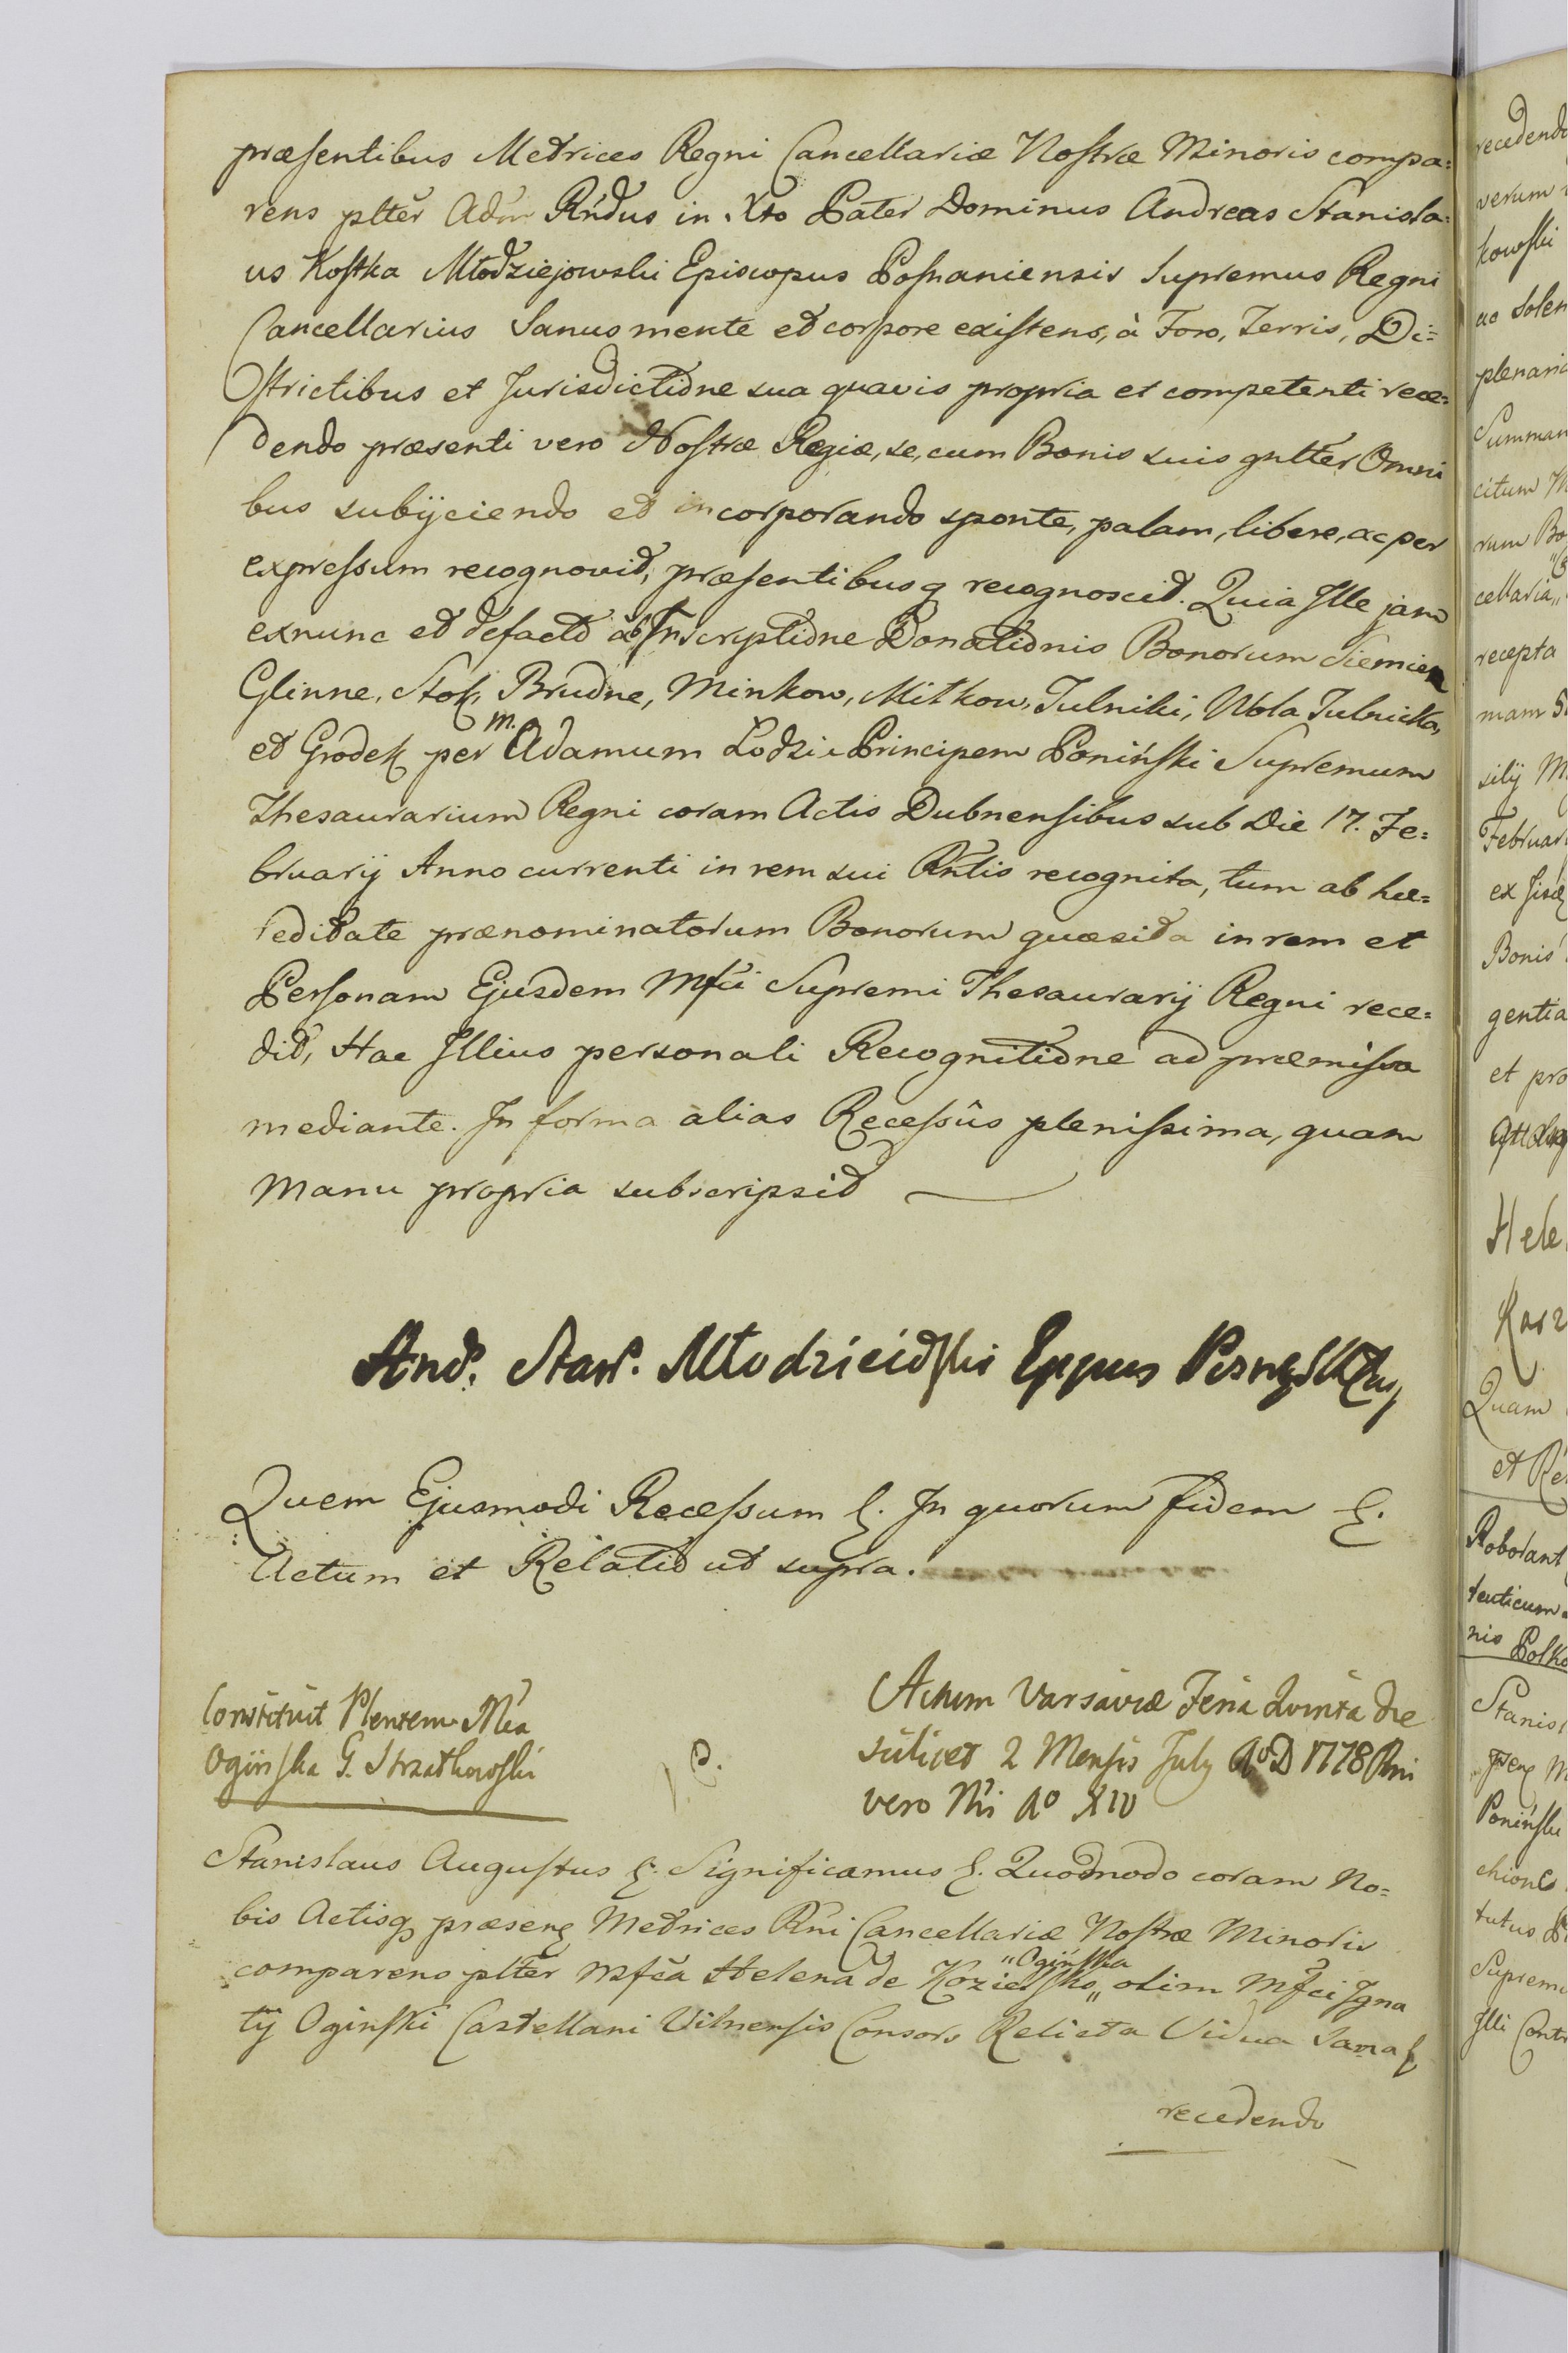 præsentibus Metrices Regni Cancellariæ Nostræ Minoris compa=
rens pltěr Adm Rndus in Xto Pater Dominus Andreas Stanisla=
us Kostka Młodziejowski Episcopus Posnaniensis Supremus Regni
Cancellarius Sanus mente et corpore existens, à Foro, Terris, Di=
strictibus et Jurisdictione sua quavis propria et competenti rece=
dendo præsenti vero Nostræ Regiæ, se, cum Bonis suis gnltěr Omni
bus subijciendo et incorporando sponte, palam, libere, ac per
expressum recognovit, præsentibusq recognoscit. Quia Ille jam
exnunc et defacto ab Inscriptione Donationis Bonorum Siemien
Glinne, Stok, Brudne, Minkow, Mitkow, Tulniki, Wola Tulnicka,
et Grodek per M. Adamum Lodzia Principem Poniński Supremum
Thesaurarium Regni coram Actis Dubnensibus sub Die 17. Fe=
bruarij Anno currenti in rem sui Rntis recognita, tum ab hæ=
reditate prænominatorum Bonorum quæsita in rem et
Personam Ejusdem Mfci Supremi Thesaurarij Regni rece=
dit, Hac Illius personali Recognitione ad præmissa
mediante. In forma alias Recessûs plenissima, quam
Manu propria subscripsit
And. Stan. Młodzieiowski Eppus
Quem Ejusmodi Recessum &. In quorum fidem &.
Actum et Relatio ut supra.
Constituit Plentem Mca
Ogińska G. Strzałkowski
Actum Varsaviæ Feria Quinta die
scilicet 2 Mensis July Ao D 1778 Rni
vero Nri Ao XIV
Stanislaus Augustus &. Significamus &. Quodmodo coram No=
bis Actisq præsens Metrices Rni Cancellariæ Nostræ Minoris
comparens pltěr Mfca Helena de "Ogińska" olim Mfci Igna
tij Ogiński Castellani Vilnensis Consors Relicta Vidua Sana &
recedendo
recedendo
verum
kowski
ac solen
plenari
Summam
citum
rum Bo
cellaria
recepta
mam
silij M
Februar
Bonis
gentia
et pro
Hele
Quam
et
Roborant
tenticum
nis
Stanis
Poniński
tutus
Suprem
Illi Contr